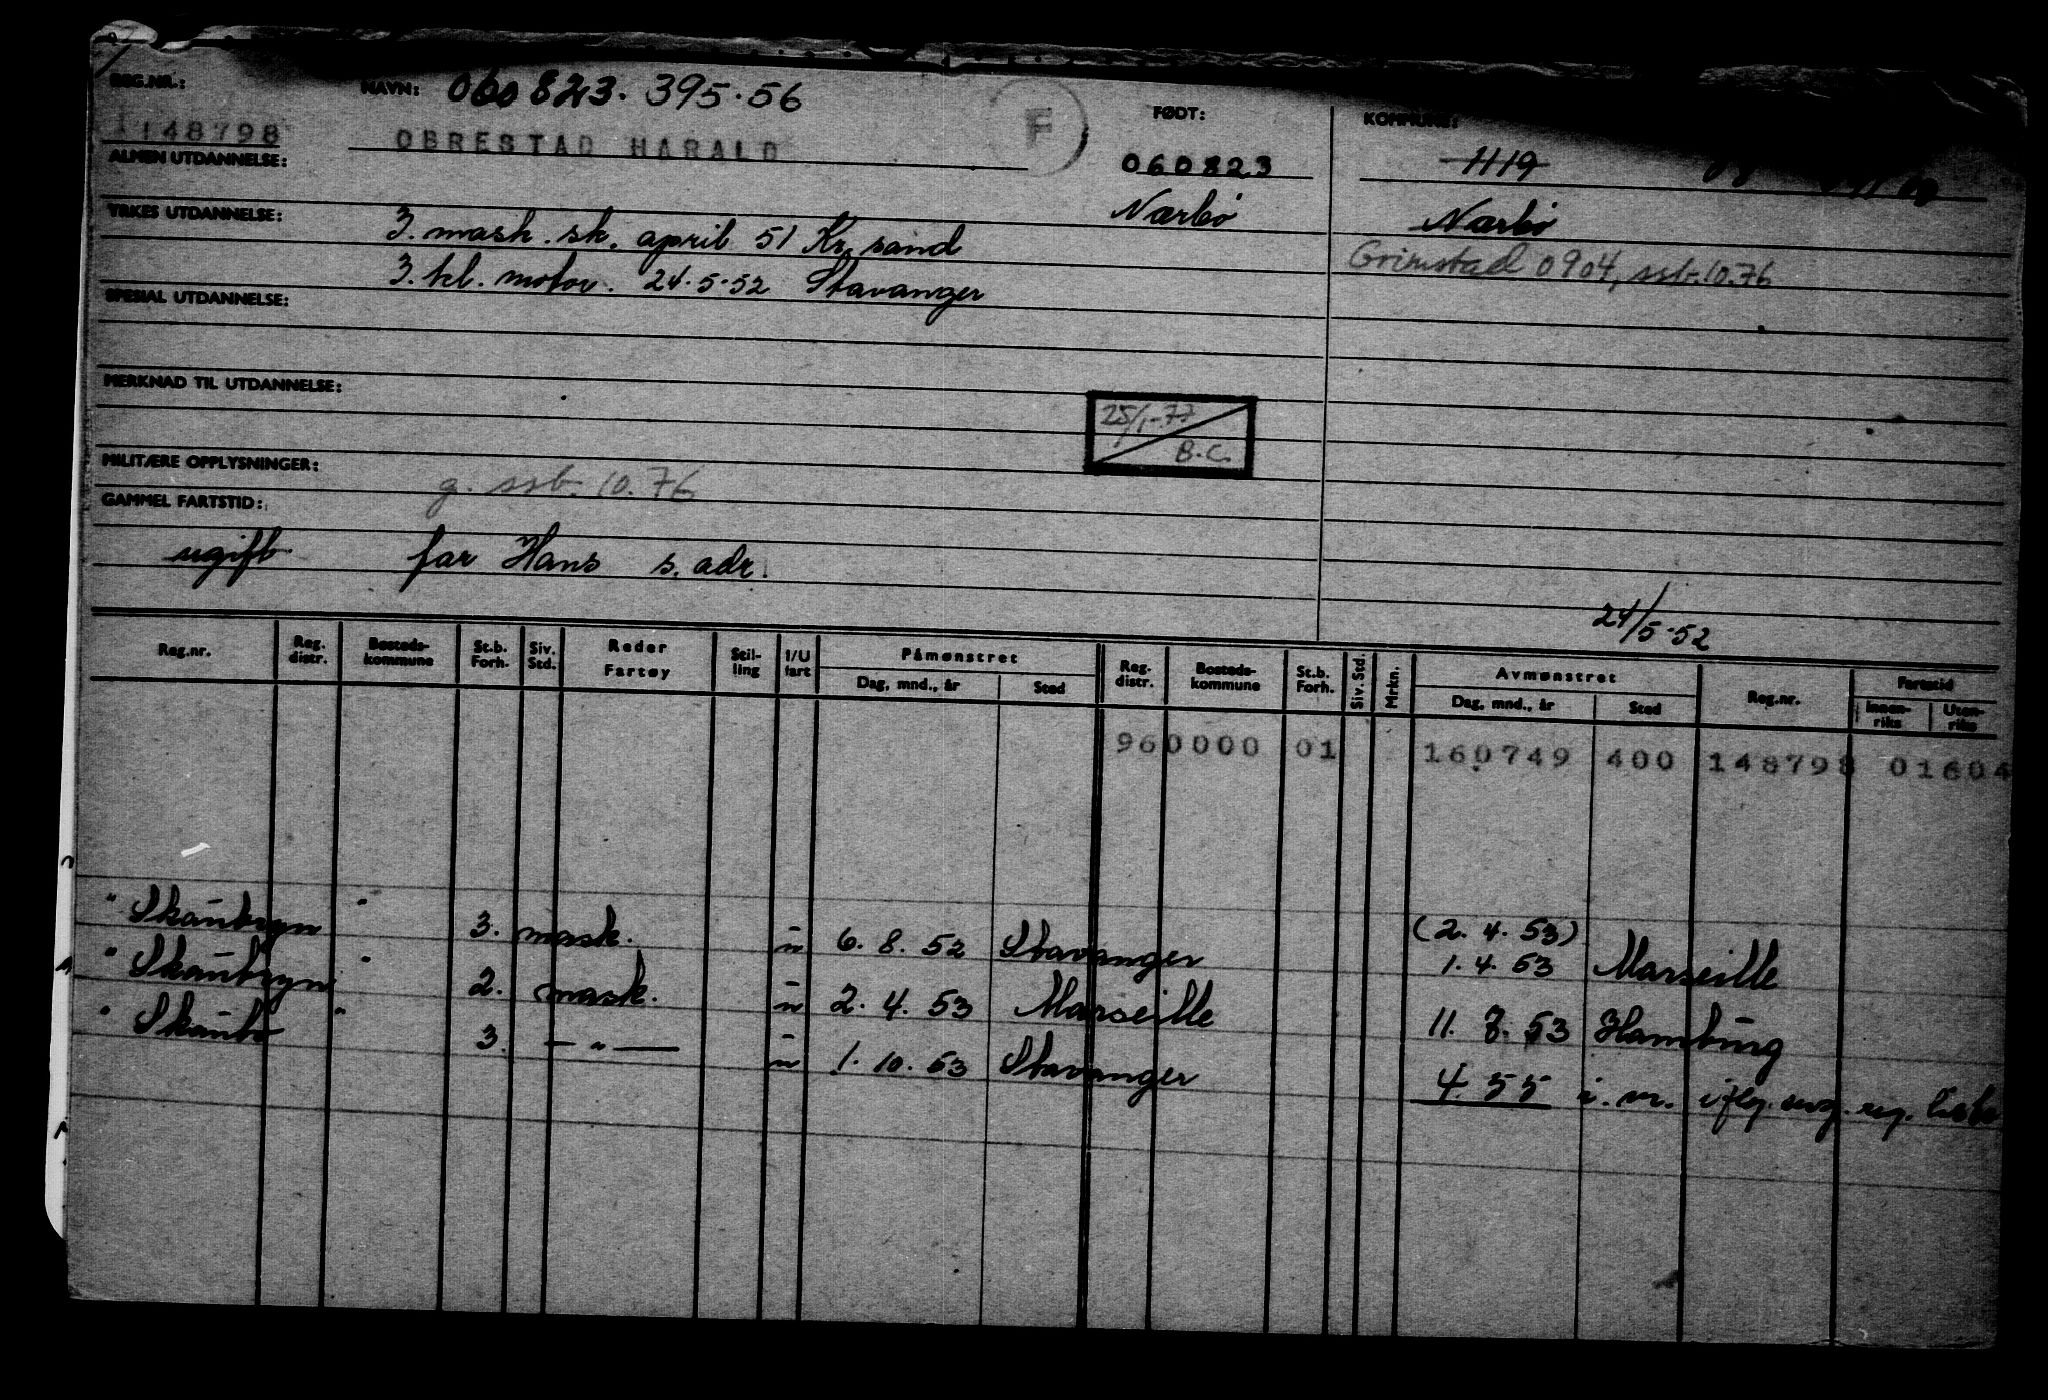 REG.NR.: NAVN: 060823. 395.56 F FØDT: KOMMUNE:
148798 OBRESTAD HARALD 060823 1119
ALMEN UTDANNELSE: Nærbø Nærbø
YRKES UTDANNELSE: 3. mask. sk. april 51 Kr. sand Grimstad 0904, ssb. 10.76
3. kl. motor. 24.5.52 Stavanger
SPESIAL UTDANNELSE:
MERKNAD TIL UTDANNELSE:
25/1-77
B.C.
MILITÆRE OPPLYSNINGER:
g. ssb. 10.76
GAMMEL FARTSTID:
ugift far Hans s. adr.
24/5-52
Reg.nr. Reg. distr. Bosteds-kommune St.b. Forh. Siv. Std. Reder Fartøy Stil-ling I/U fart Påmønstret Dag, mnd., år Sted Reg. distr. Bosteds-kommune St.b. Forh. Siv. Std. Mrkn. Avmønstret Dag, mnd., år Sted Reg.nr. Fartstid Innen-riks Uten-riks
960000 01 160749 400 148798 01604
(2. 4. 53)
" Skaubryn " 3. mask. ū 6. 8. 52 Stavanger 1. 4. 53 Marseille
" Skaubryn " 2. mask. ū 2. 4. 53 Marseille 11. 8. 53 Hamburg
" Skaubo " 3. — " — ū 1. 10. 53 Stavanger 4. 55 i. m. iflg. utg. reg. liste